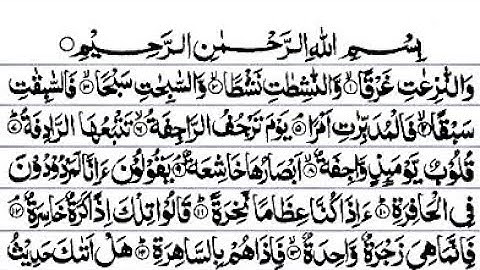 بِسْمِ اللهِ الرَّحْمٰنِ الرَّحِيْمِ ○
وَالنّٰزِعٰتِ غَرْقًا ۙ﴿۱﴾ وَّالنّٰشِطٰتِ نَشْطًا ۙ﴿۲﴾ وَّالسّٰبِحٰتِ سَبْحًا ۙ﴿۳﴾ فَالسّٰبِقٰتِ
سَبْقًا ۙ﴿۴﴾ فَالْمُدَبِّرٰتِ اَمْرًا ۘ﴿۵﴾ يَوْمَ تَرْجُفُ الرَّاجِفَةُ ۙ﴿۶﴾ تَتْبَعُهَا الرَّادِفَةُ ؕ﴿۷﴾
قُلُوْبٌ يَّوْمَئِذٍ وَّاجِفَةٌ ۙ﴿۸﴾ اَبْصَارُهَا خَاشِعَةٌ ۘ﴿۹﴾ يَقُوْلُوْنَ ءَاِنَّا لَمَرْدُوْدُوْنَ
فِى الْحَافِرَةِ ؕ﴿۱۰﴾ ءَاِذَا كُنَّا عِظَامًا نَّخِرَةً ؕ﴿۱۱﴾ قَالُوْا تِلْكَ اِذًا كَرَّةٌ خَاسِرَةٌ ۘ﴿۱۲﴾
فَاِنَّمَا هِىَ زَجْرَةٌ وَّاحِدَةٌ ۙ﴿۱۳﴾ فَاِذَا هُمْ بِالسَّاهِرَةِ ؕ﴿۱۴﴾ هَلْ اَتٰىكَ حَدِيْثُ